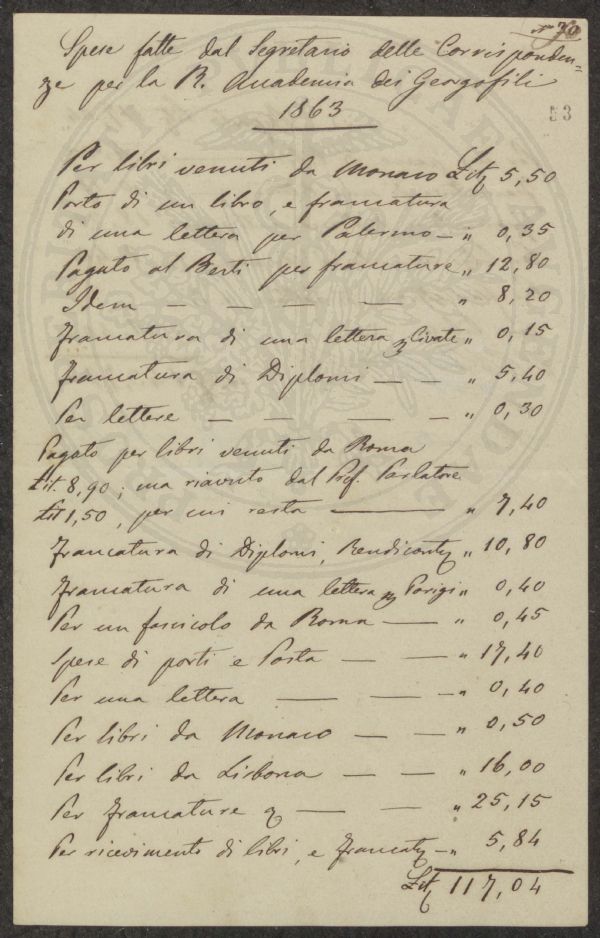 70
Spese fatte dal Segretario delle Corrisponden=
ze per la R. Accademia dei Georgofili
1863
53
Per libri venuti da Monaco Lit 5,50
Porto di un libro, e francatura
di una lettera per Palermo — " 0,35
Pagato al Berti per francature " 12,80
Idem — — — — " 8,20
Francatura di una lettera p Civate " 0,15
Francatura di Diplomi — — " 5,40
Per lettere — — — — " 0,30
Pagato per libri venuti da Roma
Lit. 8,90; ma riavuto dal Prof. Parlatore
Lit 1,50, per cui resta — " 7,40
Francatura di Diplomi, Rendiconti " 10,80
Francatura di una lettera p Parigi " 0,40
Per un fascicolo da Roma — " 0,45
Spese di porti e Posta — — " 17,40
Per una lettera — — " 0,40
Per libri da Monaco — — " 0,50
Per libri da Lisbona — — " 16,00
Per francature — — " 25,15
Per ricevimento di libri, e francat — " 5,84
Lit 117,04